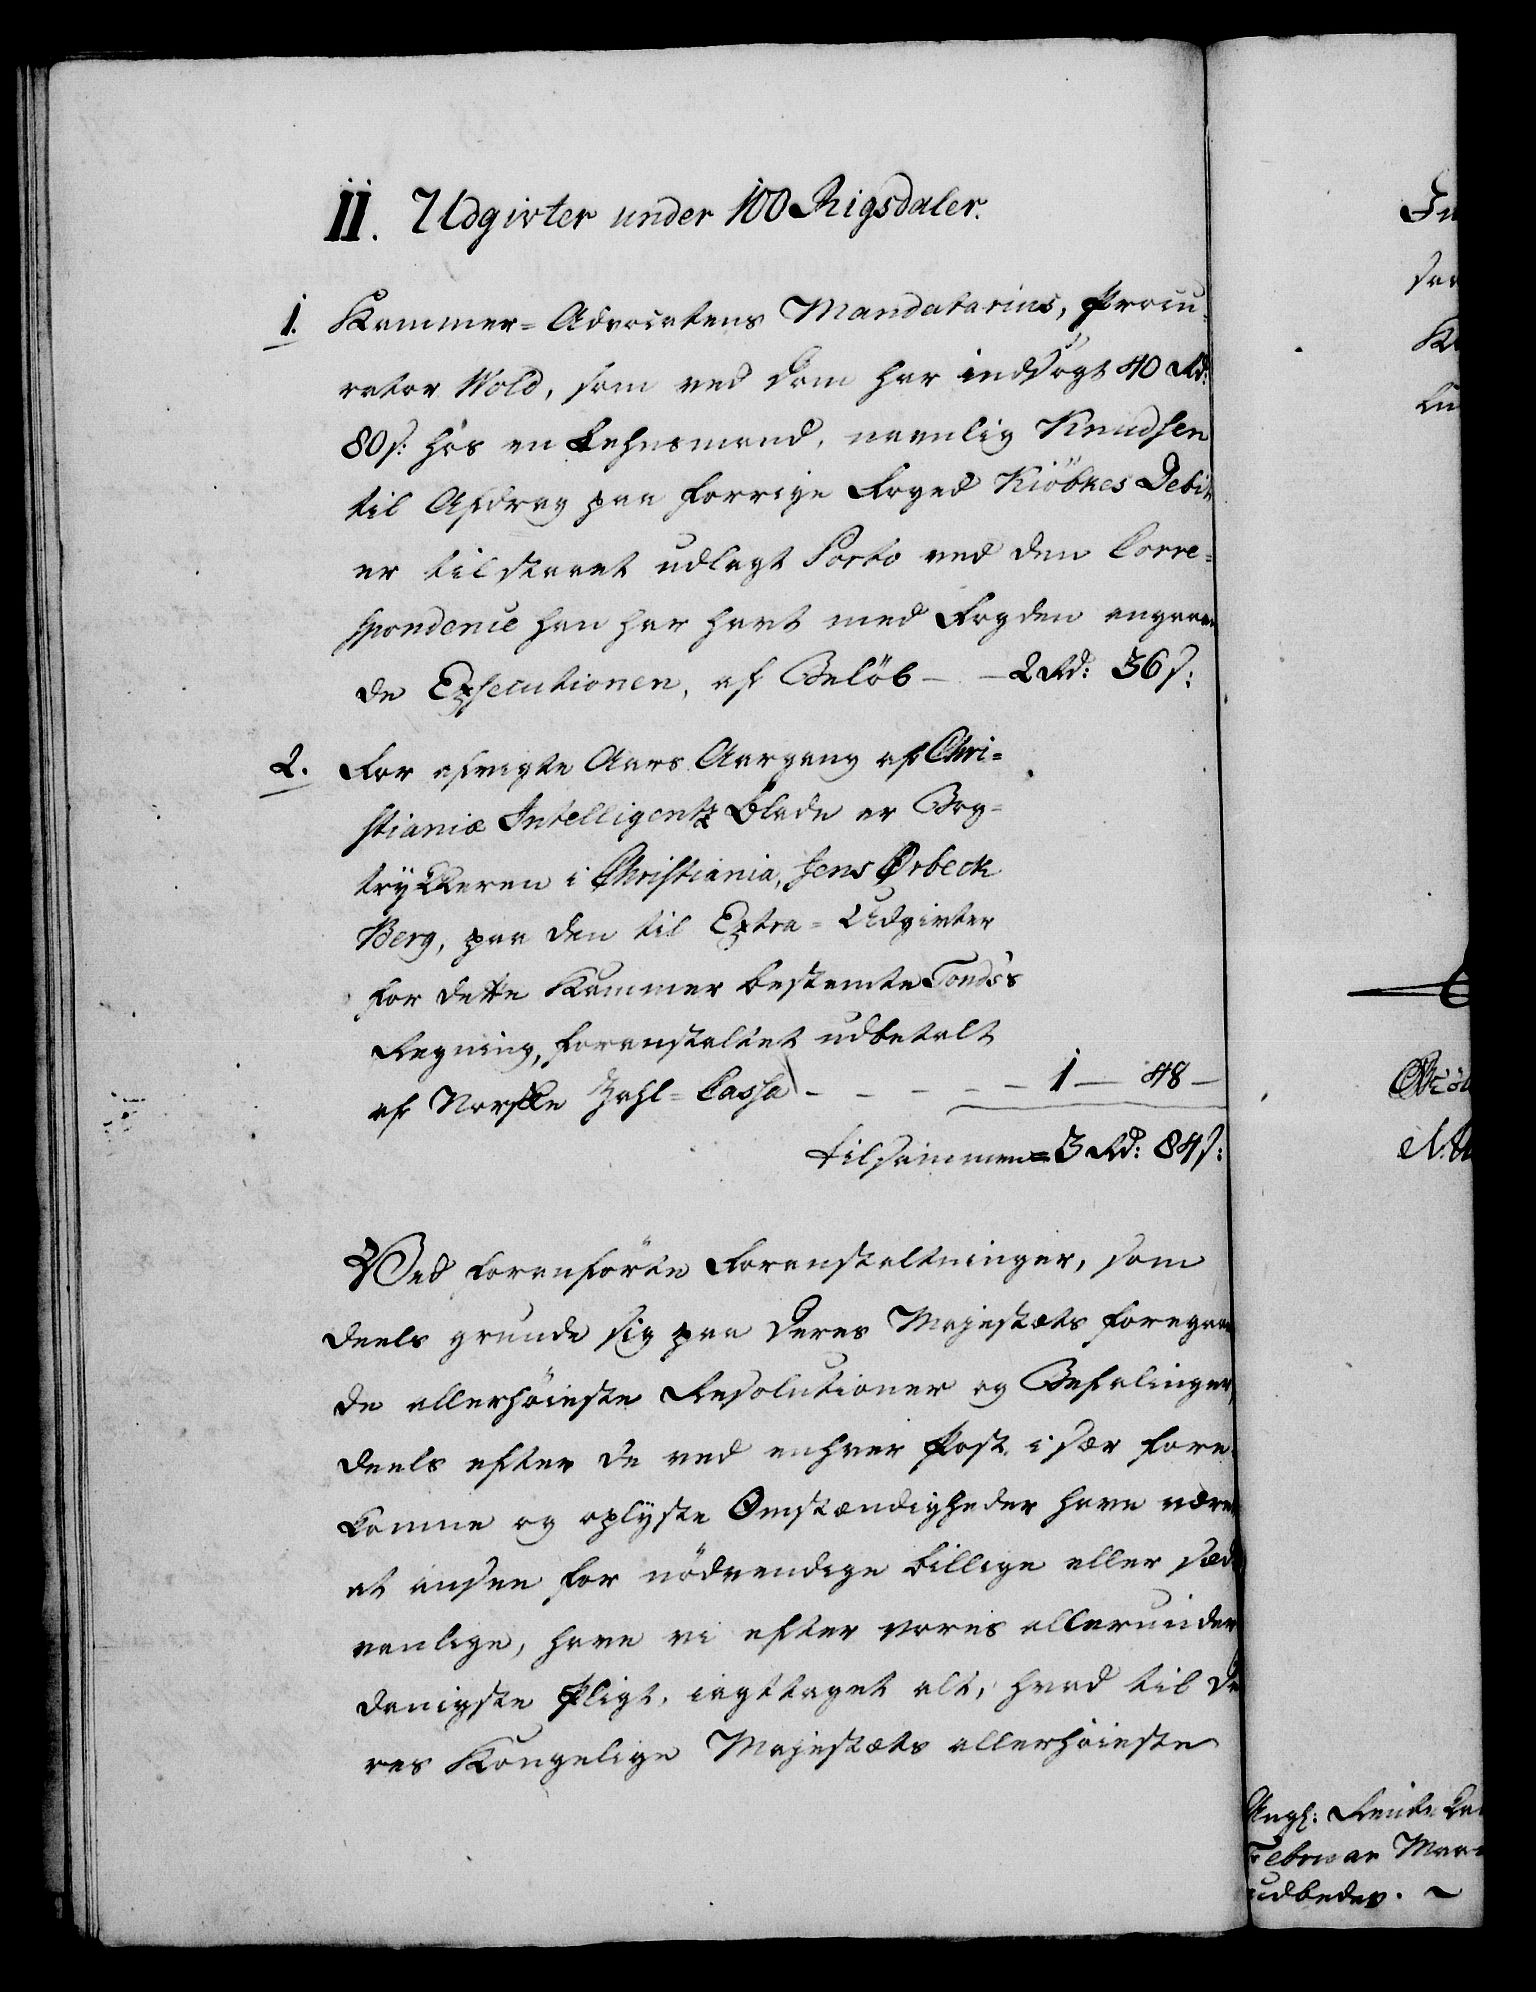 II. Udgivter under 100 Rigsdaler.
1. Kammer=Advocatens Mandatarius, Procu=
rator Wold, som ved Dom har inddsögt 40 Rd:
80 s: hos en Lehnsmand, navnlig Knudsen
til Afdrag paa forrige Foged Kiöbkes Debit
er tilstaaet udlagt Porto ved den Corre=
spondence han har havt med Fogden angaaen
de Exsecutionen, af Belöb – – 2 Rd: 36 s:
2. For afvigte Aars Aargang af Chri=
stianiæ Intelligentz Blade er Bog=
trykkeren i Christiania, Jens Örbeck
Berg, paa den til Extra=Udgivter
for dette Kammer bestemte Fonds's
Regning, foranstaltet udbetalt
af Norske Zahl=Cassa – – – – – 1 – 48 –
tilsammen = 3 Rd: 84 s:
Ved foranförte Foranstaltninger, som
deels grunde sig paa Deres Majestæts foregaaen
de allerhöieste Resolutioner og Befalinger,
deels efter de ved enhver Post i sær fore=
komne og oplyste Omstændigheder have været
at ansee for nödvendige billige eller sæd
vanlige, have vi efter vores allerunder
danigste Pligt, iagttaget alt, hvad til De
res Kongelige Majestæts allerhöieste
Februar
udbedes. ~